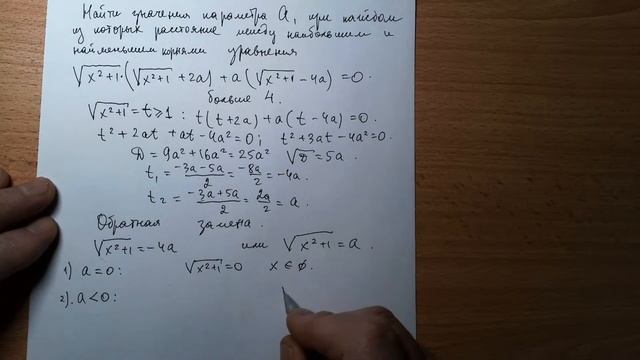 Найти значения параметра a, при каждом
из которых расстояние между наибольшим и
наименьшим корнями уравнения
√x²+1·(√x²+1 + 2a) + a(√x²+1 - 4a) = 0.
больше 4.
√x²+1 = t ≥ 1 : t(t+2a) + a(t-4a) = 0.
t² + 2at + at - 4a² = 0; t² + 3at - 4a² = 0.
D = 9a² + 16a² = 25a² √D = 5a.
t₁ = (-3a-5a)/2 = -8a/2 = -4a.
t₂ = (-3a+5a)/2 = 2a/2 = a.
Обратная замена.
√x²+1 = -4a или √x²+1 = a.
1) a=0: √x²+1 = 0 x ∈ ∅.
2). a<0: